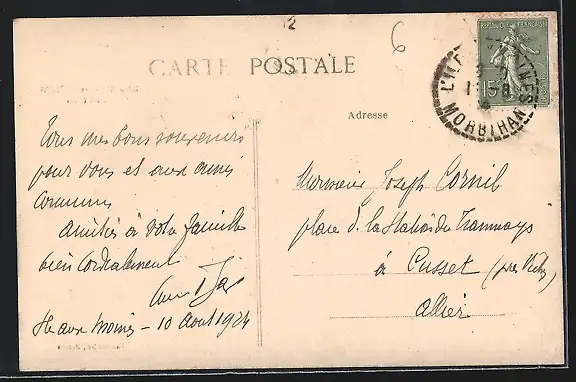 12
6
CARTE POSTALE
REPUBLIQUE FRANÇAISE
15
L'ILE MOINES
MORBIHAN
Adresse
Tous mes bons souvenirs
pour vous et aux amis
communs
Amitiés à votre famille
bien cordialement
Ile aux Moines - 10 Août 1924
Monsieur Joseph Cornil
place de la Station du Tramways
à Cusset (près Vichy)
Allier